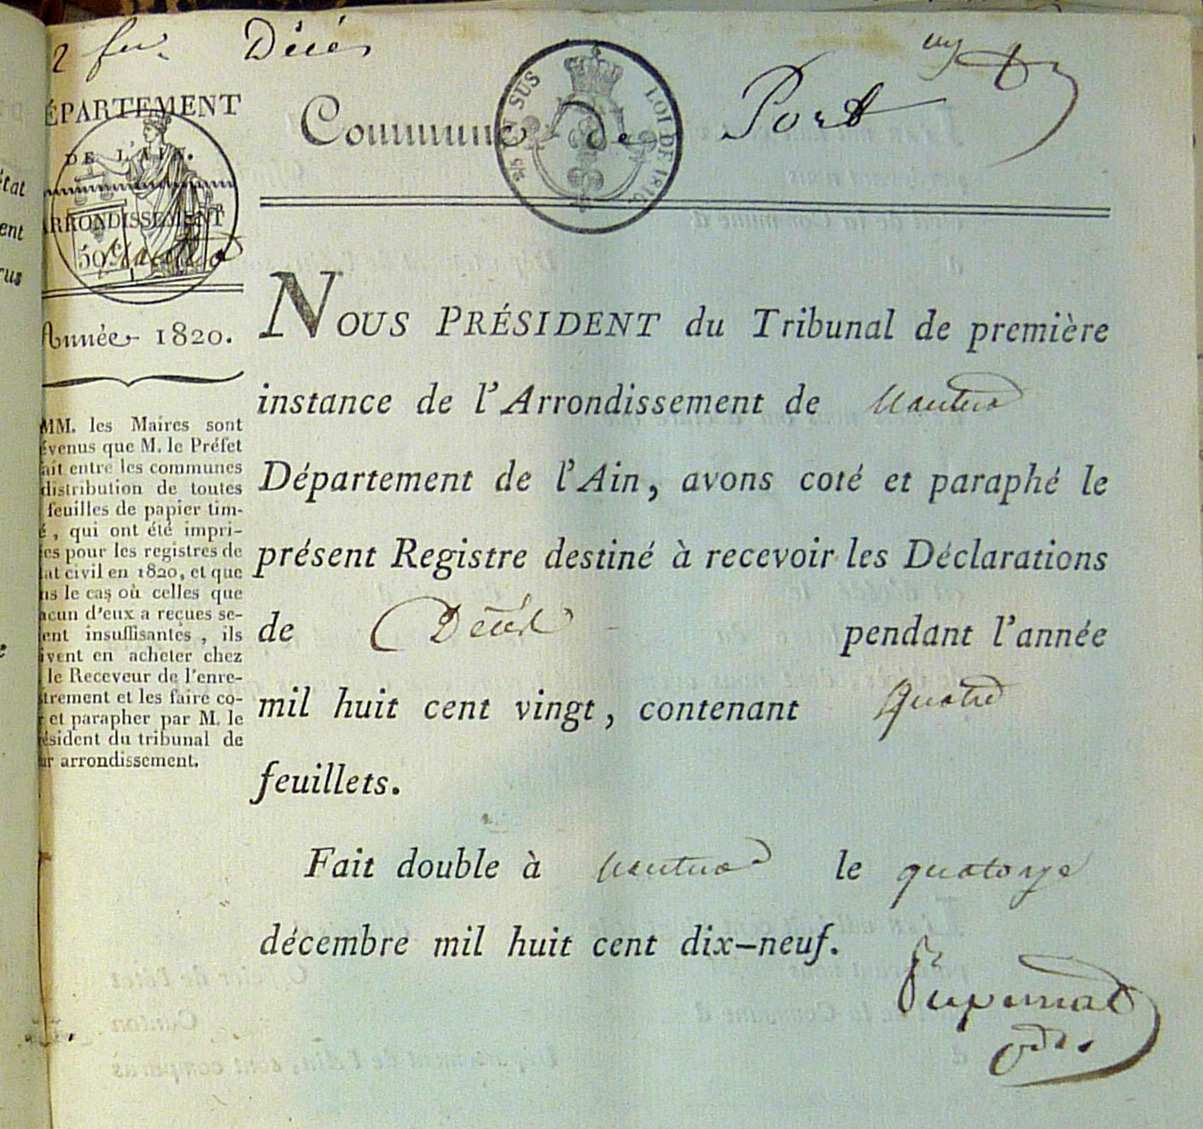 Décès
Commune de Port
SUS LOI DE 1816.
ÉPARTEMENT
DE L'AIN.
ARRONDISSEMENT
50 c
Année 1820.
MM. les Maires sont
évenus que M. le Préfet
ait entre les communes
distribution de toutes
feuilles de papier tim-
é, qui ont été impri-
es pour les registres de
at civil en 1820, et que
ns le cas où celles que
acun d'eux a reçues se-
ent insuffisantes, ils
ivent en acheter chez
le Receveur de l'enre-
trement et les faire co-
r et parapher par M. le
ésident du tribunal de
ur arrondissement.
NOUS PRÉSIDENT du Tribunal de première
instance de l'Arrondissement de Nantua
Département de l'Ain, avons coté et paraphé le
présent Registre destiné à recevoir les Déclarations
de Décès pendant l'année
mil huit cent vingt, contenant quatre
feuillets.
Fait double à Nantua le quatorze
décembre mil huit cent dix-neuf.
état
ent
rus